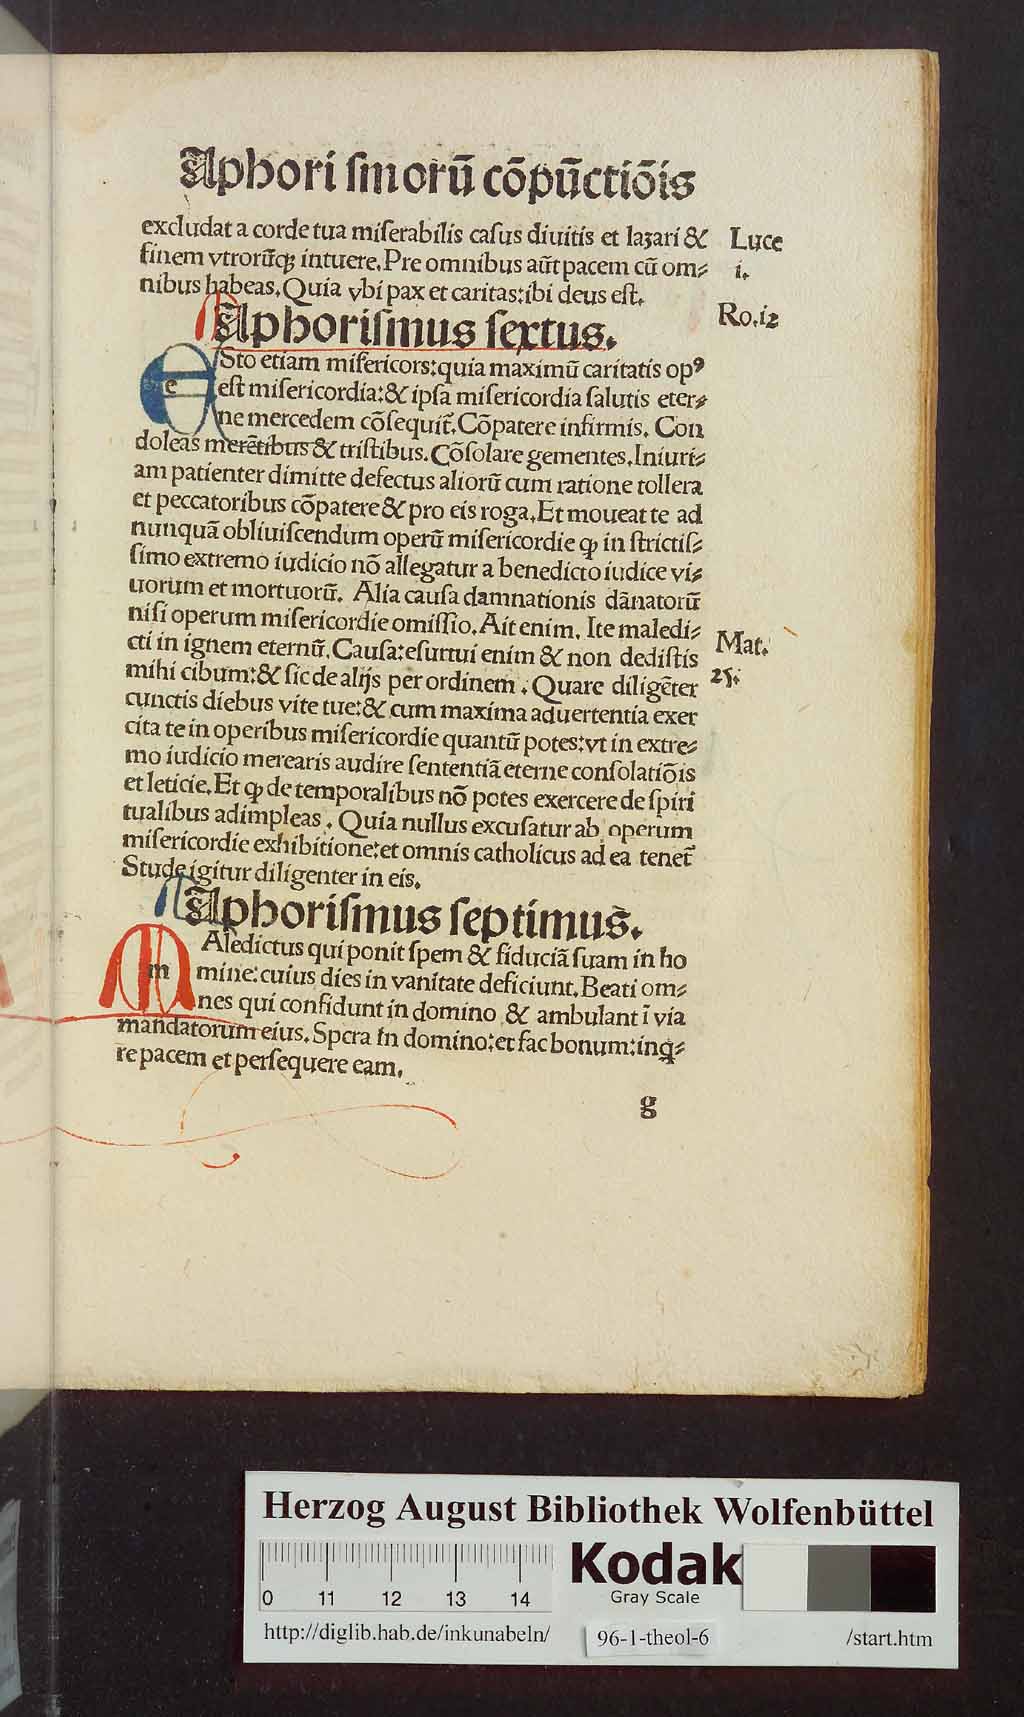 Aphori ſmorū cōpūctiōis
excludat a corde tua miſerabilis caſus diuitis et lazari &
finem vtrorūqꝫ intuere. Pre omnibus aūt pacem cū om⸗
nibus habeas. Quia vbi pax et caritas: ibi deus eſt.
Luce
i.
Ro. i2
Aphoriſmus ſextus.
e
Sto etiam miſericors: quia maximū caritatis opꝰ
eſt miſericordia: & ipſa miſericordia ſalutis eter⸗
ne mercedem cōſequit̄. Cōpatere infirmis. Con
doleas merētibus & triſtibus. Cōſolare gementes. Iniuri⸗
am patienter dimitte defectus aliorū cum ratione tollera
et peccatoribus cōpatere & pro eis roga. Et moueat te ad
nunquā obliuiſcendum operū miſericordie ꝙ in ſtrictiſ⸗
ſimo extremo iudicio nō allegatur a benedicto iudice vi⸗
uorum et mortuorū. Alia cauſa damnationis dānatorū
niſi operum miſericordie omiſſio. Ait enim. Ite maledi⸗
cti in ignem eternū. Cauſa: eſuriui enim & non dediſtis
mihi cibum: & ſic de alijs per ordinem. Quare diligēter
cunctis diebus vite tue: & cum maxima aduertentia exer
cita te in operibus miſericordie quantū potes: vt in extre⸗
mo iudicio merearis audire ſententiā eterne conſolatiōis
et leticie. Et ꝙ de temporalibus nō potes exercere de ſpiri
tualibus adimpleas. Quia nullus excuſatur ab operum
miſericordie exhibitione: et omnis catholicus ad ea tenet̄
Stude igitur diligenter in eis.
Mat.
25.
Aphoriſmus ſeptimus.
m
Aledictus qui ponit ſpem & fiduciā ſuam in ho
mine: cuius dies in vanitate deficiunt. Beati om⸗
nes qui confidunt in domino & ambulant ī via
mandatorum eius. Spera in domino: et fac bonum: inq̄⸗
re pacem et perſequere eam.
g
Herzog August Bibliothek Wolfenbüttel
0 11 12 13 14
Kodak
Gray Scale
http://diglib.hab.de/inkunabeln/ 96-1-theol-6 /start.htm